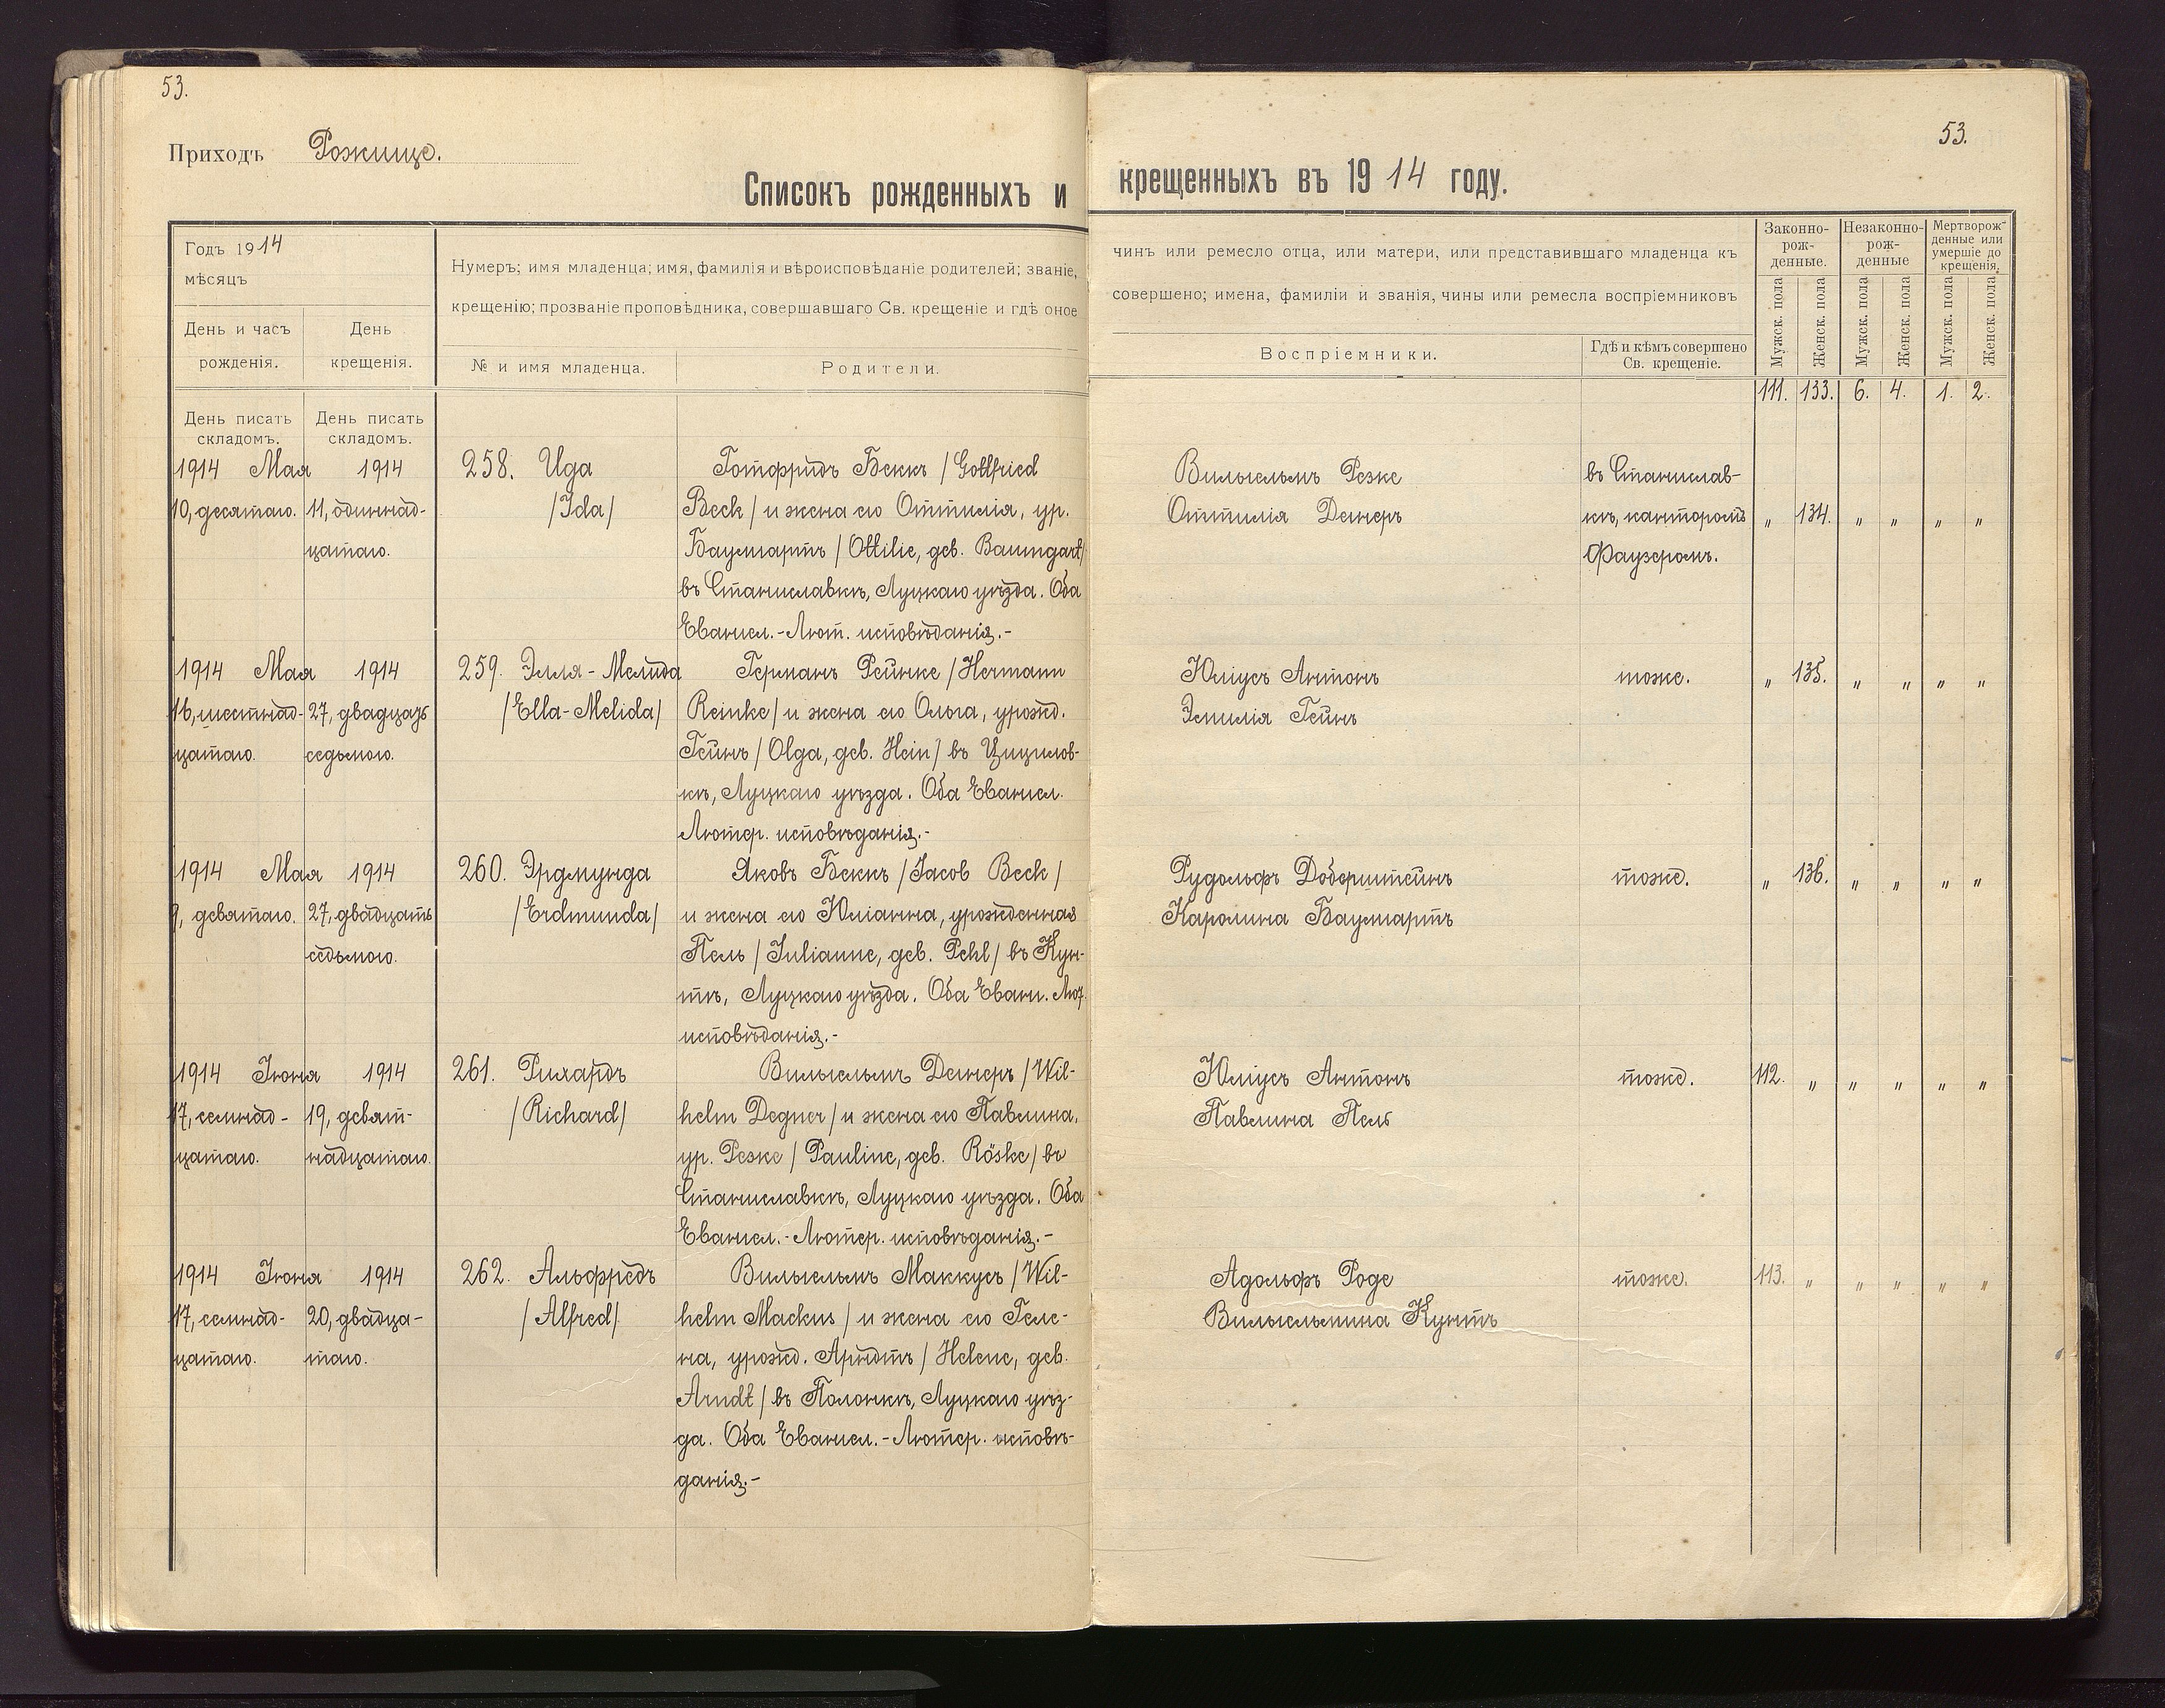 53.
Приходъ Рожище.
Списокъ рожденныхъ и
Годъ 1914
мѣсяцъ
День и часъ рожденія.
День крещенія.
Нумеръ; имя младенца; имя, фамилія и вѣроисповѣданіе родителей; званіе,
крещенію; прозваніе проповѣдника, совершавшаго Св. крещеніе и гдѣ оное
№ и имя младенца.
Родители.
День писать складомъ.
День писать складомъ.
1914 Мая 1914 258. Ида Готфридъ Беккъ / Gottfried
10, десятаго. 11, одиннад- /Ida/ Beck / и жена его Оттилія, ур.
цатаго. Баумгартъ / Ottilie, geb. Baumgart/
въ Станиславкѣ, Луцкаго уѣзда. Оба
Евангел.-Лют. исповѣданія.-
1914 Мая 1914 259. Элля-Мелида Германъ Рейнке / Hermann
16, шестнад- 27, двадцать /Ella-Melida/ Reinke / и жена его Ольга, урожд.
цатаго. седьмого. Гейнъ / Olga, geb. Hein / въ Цицилов-
кѣ, Луцкаго уѣзда. Оба Евангел.
Лютер. исповѣданія.-
1914 Мая 1914 260. Эрдмунда Яковъ Беккъ / Jacob Beck /
9, девятаго. 27, двадцать /Erdmunda/ и жена его Юліанна, урожденная
седьмого. Пель / Julianne, geb. Pehl / въ Кун-
тѣ, Луцкаго уѣзда. Оба Еванг. Лют.
исповѣданія.-
1914 Іюня 1914 261. Рихардъ Вильгельмъ Дегнеръ / Wil-
17, семнад- 19, девят- /Richard/ helm Degner / и жена его Павлина,
цатаго. надцатаго. ур. Резке / Pauline, geb. Röske / въ
Станиславкѣ, Луцкаго уѣзда. Оба
Евангел.-Лютер. исповѣданія.-
1914 Іюня 1914 262. Альфредъ Вильгельмъ Маккусъ / Wil-
17, семнад- 20, двадца- /Alfred/ helm Mackus / и жена его Геле-
цатаго. таго. на, урожд. Арндтъ / Helene, geb.
Arndt / въ Полонкѣ, Луцкаго уѣз-
да. Оба Евангел.-Лютер. исповѣ-
данія.-
53.
крещенныхъ въ 1914 году.
чинъ или ремесло отца, или матери, или представившаго младенца къ
совершено; имена, фамиліи и званія, чины или ремесла воспріемниковъ
Воспріемники.
Гдѣ и кѣмъ совершено
Св. крещеніе.
Законно-
рож-
денные.
Незаконно-
рож-
денные
Мертворож-
денные или
умершіе до
крещенія.
Мужск. пола Женск. пола Мужск. пола Женск. пола Мужск. пола Женск. пола
111. 133. 6. 4. 1. 2.
Вильгельмъ Резке въ Станислав-
Оттилія Дегнеръ кѣ, канторомъ " 134. " " " "
Фаузеромъ.
Юліусъ Антонъ тоже. " 135. " " " "
Эмилія Гейнъ
Рудольфъ Доберштейнъ тоже. " 136. " " " "
Каролина Баумгартъ
Юліусъ Антонъ тоже. 112. " " " " "
Павлина Пель
Адольфъ Роде тоже. 113. " " " " "
Вильгельмина Кунтъ